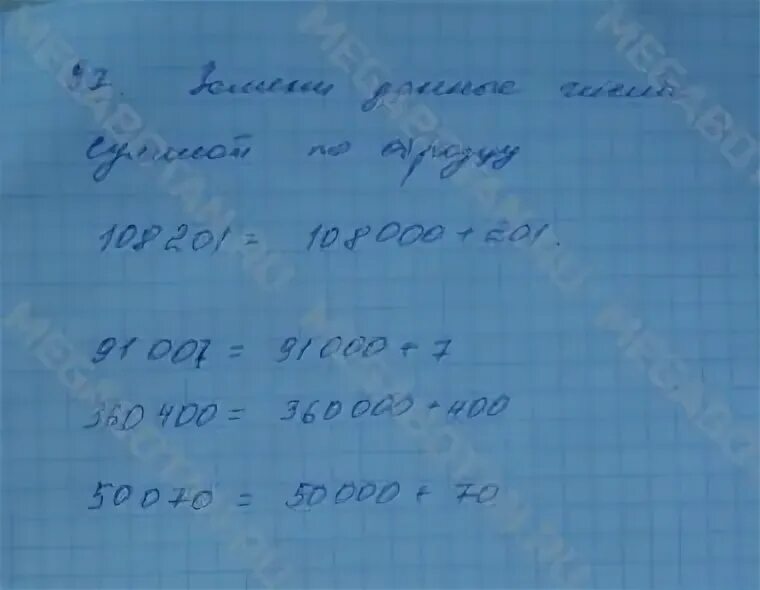 97. Замени данные числа
суммой по образцу
108 201 = 108 000 + 201.
91 007 = 91 000 + 7
360 400 = 360 000 + 400
50 070 = 50 000 + 70
MEGABOTAN.RU